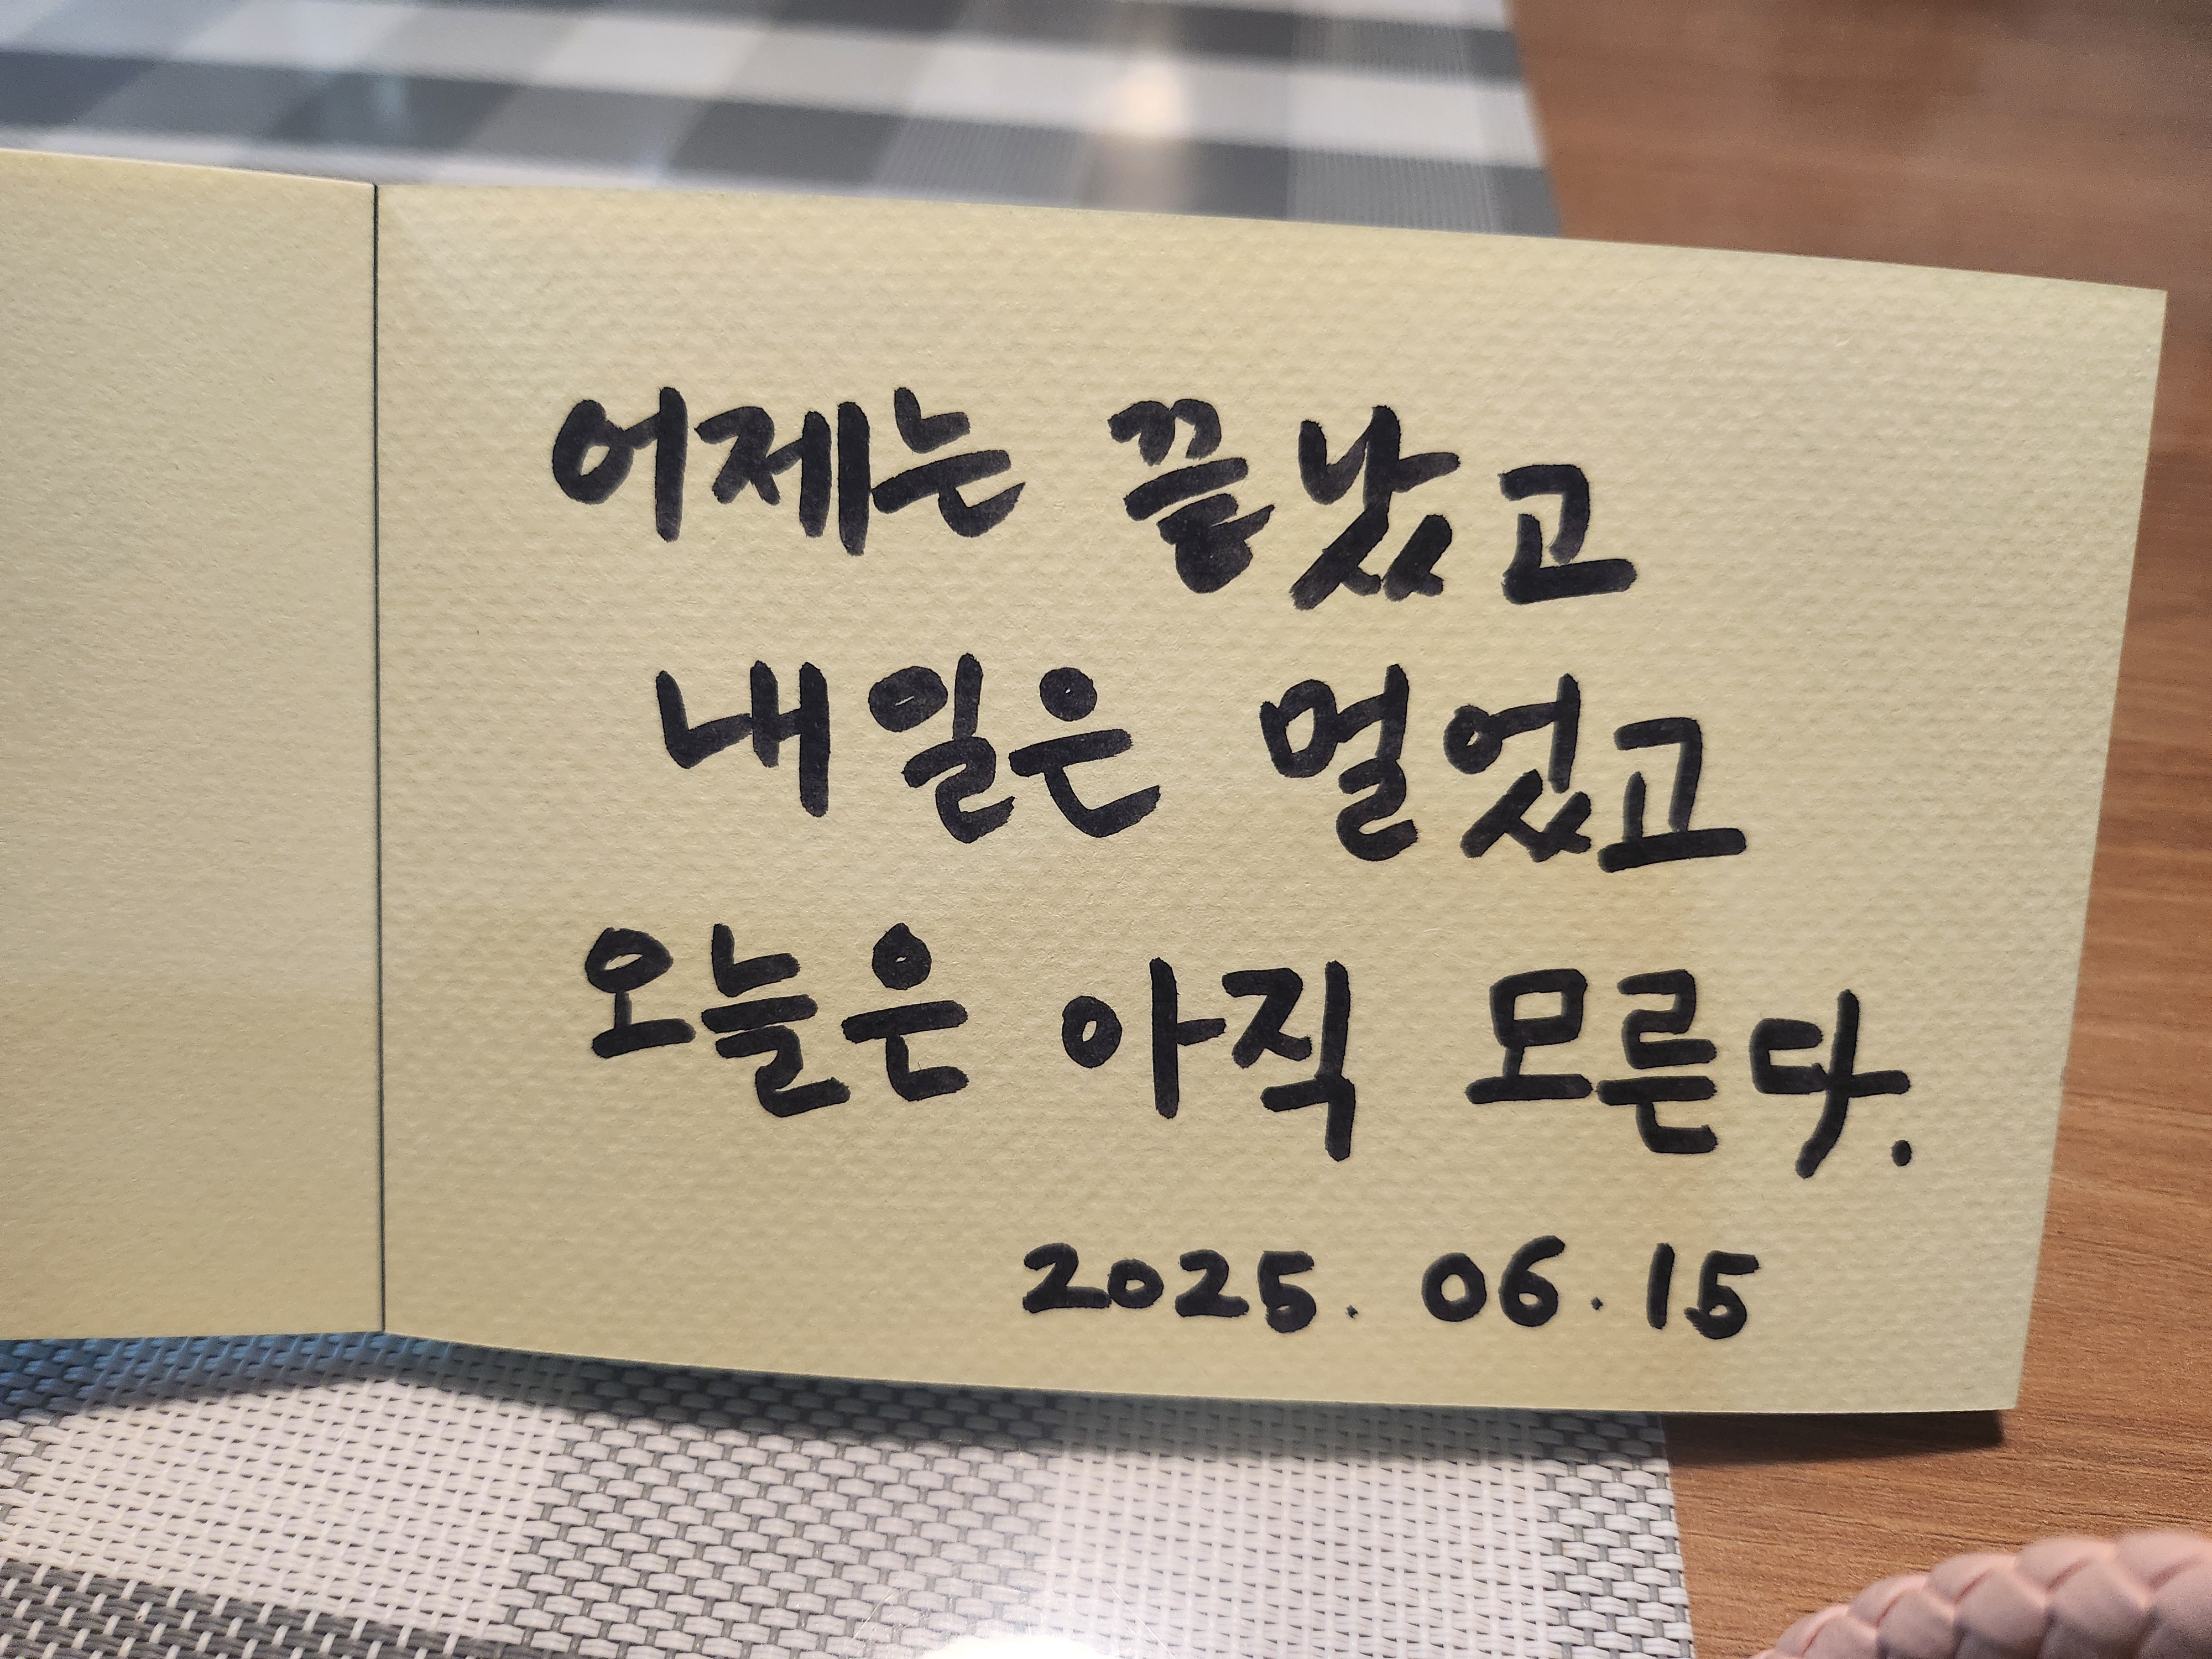 어제는 끝났고
내일은 멀었고
오늘은 아직 모른다.
2025. 06. 15